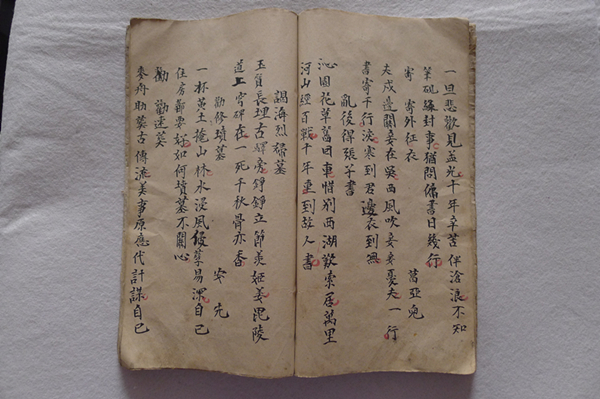 一旦悲歡見孟光十年辛苦伴滄浪不知
筆硯緣封事猶問傭書日幾行
寄 寄外征衣 葛亞兒
夫戍邊關妾在吳西風吹妾妾憂夫一行
書寄千行淚寒到君邊衣到無
亂後得張子書
沁園花草舊回車惜別西湖歎索居萬里
河山經百戰十年重到故人書
謁海烈婦墓
玉質長埋古驛旁錚錚立節羨姬姜毘陵
道上官碑在一死千秋骨亦香
勸修墳墓
一杯黃土掩山林水浸風侵草易深自己
住房都要好如何墳墓不關心
勸 勸速葬
麥舟助葬古傳流美事原應代計謀自己